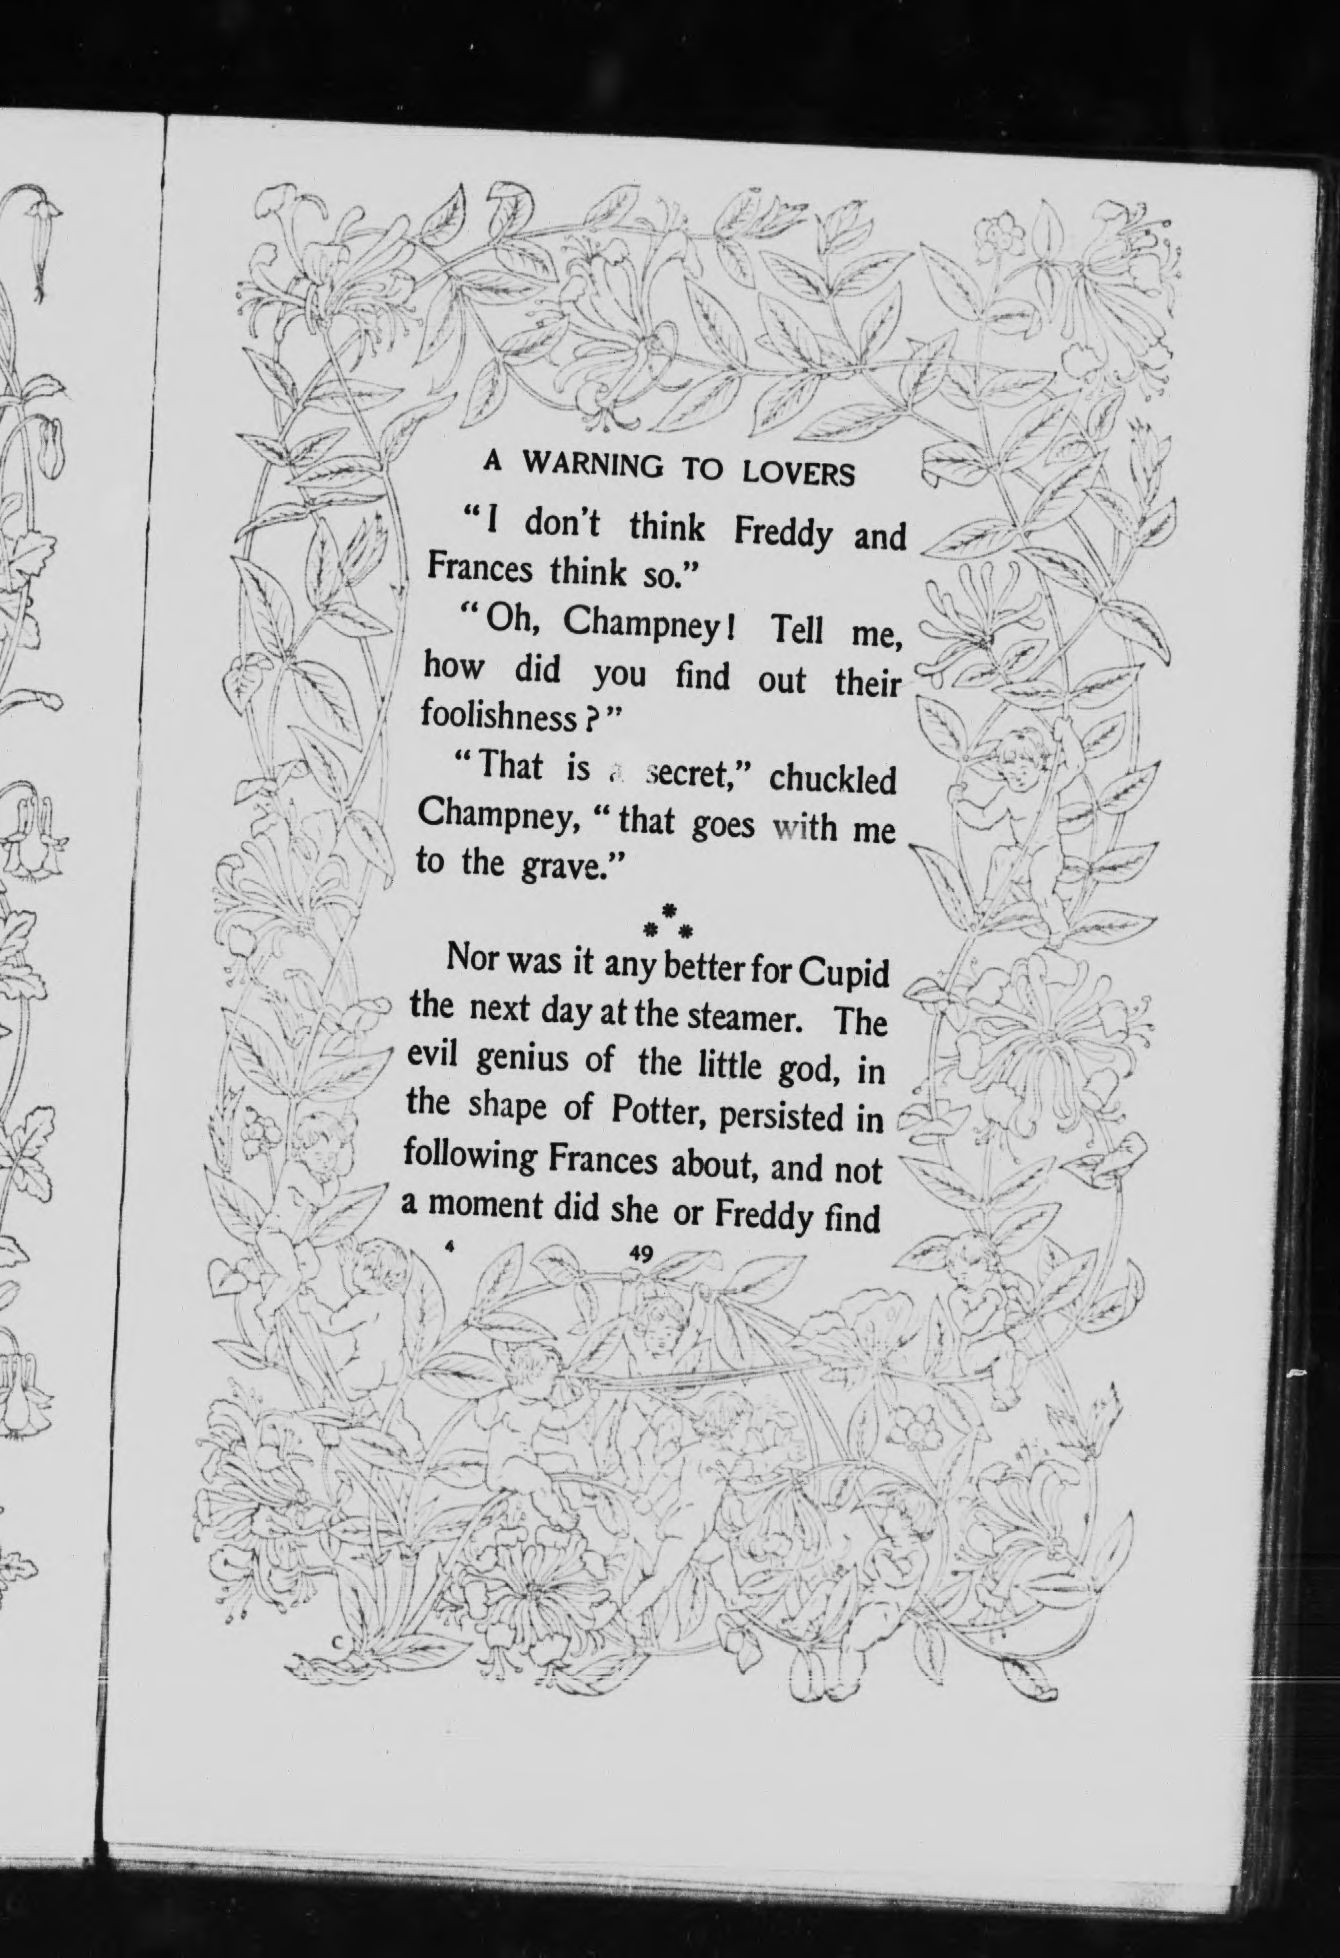 A WARNING TO LOVERS
"I don't think Freddy and
Frances think so."
"Oh, Champney! Tell me,
how did you find out their
foolishness?"
"That is a secret," chuckled
Champney, "that goes with me
to the grave."
* * *
Nor was it any better for Cupid
the next day at the steamer. The
evil genius of the little god, in
the shape of Potter, persisted in
following Frances about, and not
a moment did she or Freddy find
4 49
C